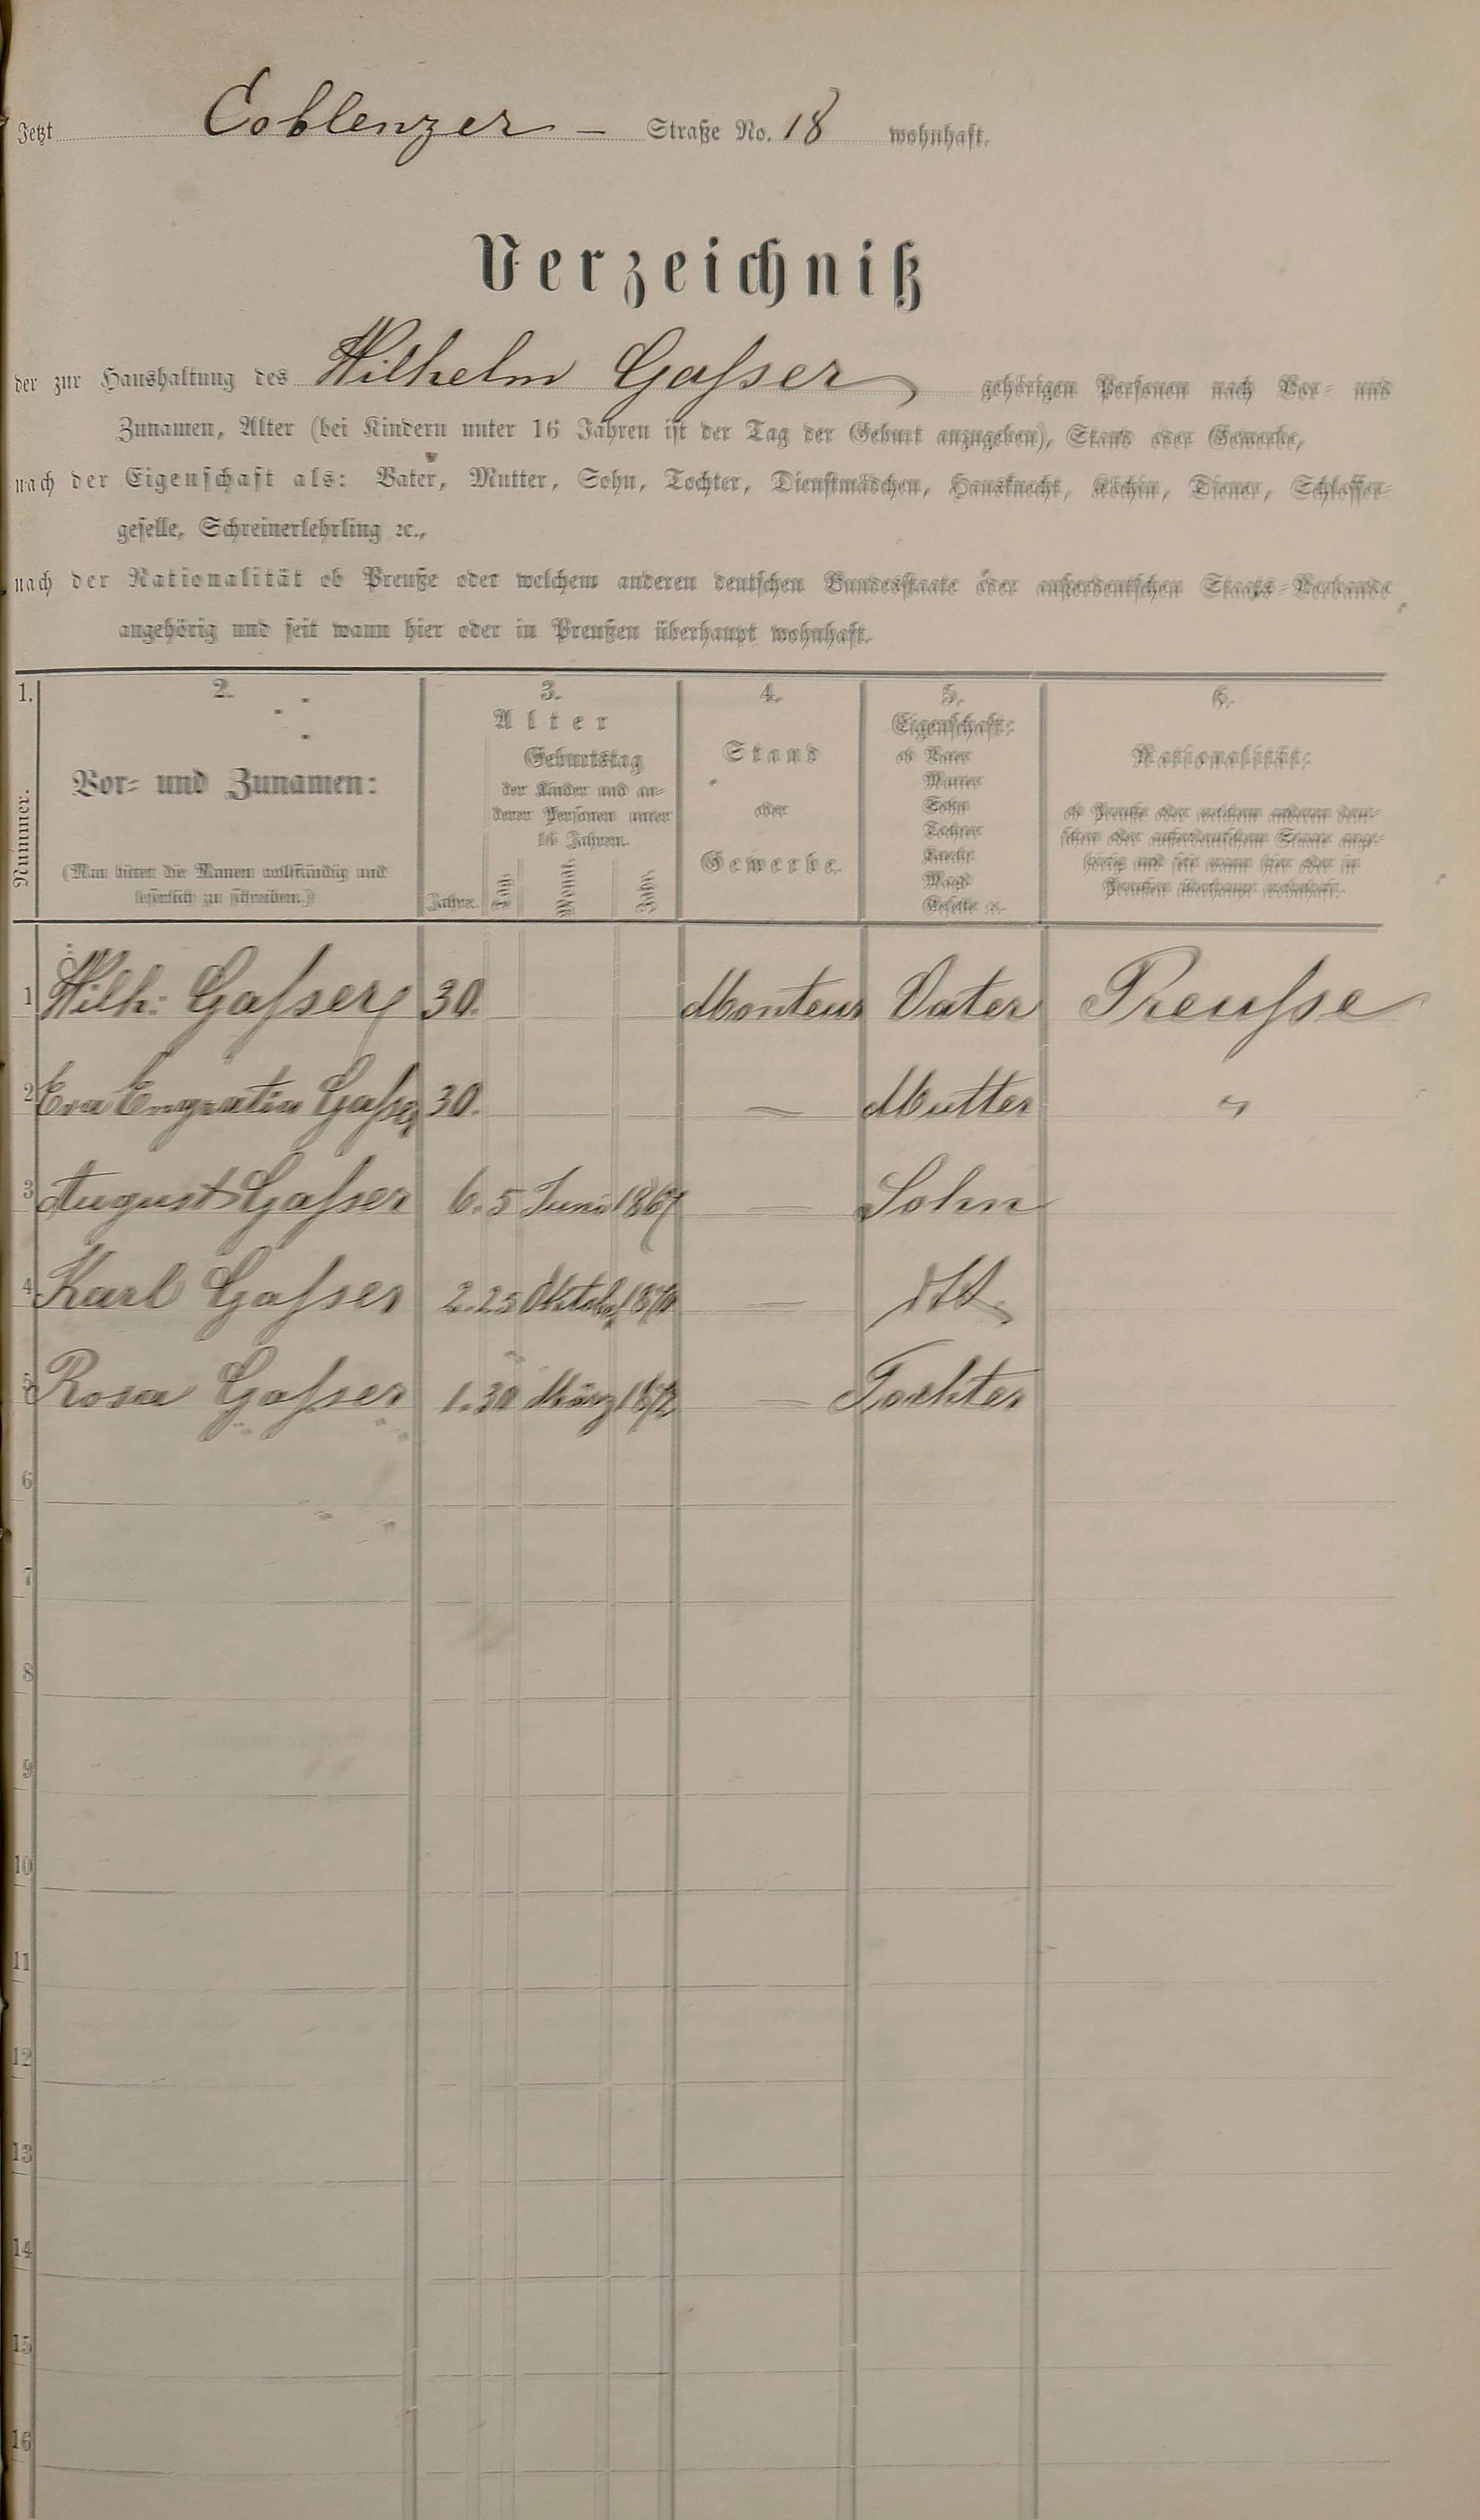 Jetzt Coblenzer - Straße No. 18 wohnhaft.
Verzeichniß
der zur Haushaltung des Wilhelm Gaſser gehörigen Personen nach Vor- und
Zunamen, Alter (bei Kindern unter 16 Jahren ist der Tag der Geburt anzugeben), Stand oder Gewerbe,
nach der Eigenschaft als: Vater, Mutter, Sohn, Tochter, Dienstmädchen, Hausknecht, Köchin, Diener, Schlosser-
geselle, Schreinerlehrling ꝛc.,
nach der Nationalität ob Preuße oder welchem anderen deutschen Bundesstaate oder außerdeutschen Staats-Verbande
angehörig und seit wann hier oder in Preußen überhaupt wohnhaft.
1. 2. 3. 4. 5. 6.
Nummer.
Vor- und Zunamen:
(Man bittet die Namen vollständig und
leserlich zu schreiben.)
Alter
Geburtstag
der Kinder und an-
derer Personen unter
16 Jahren.
Jahre. Tag. Monat. Jahr.
Stand
oder
Gewerbe.
Eigenschaft:
ob Vater
Mutter
Sohn
Tochter
Knecht
Magd
Geselle ꝛc.
Nationalität:
ob Preuße oder welchem anderen deut-
schen oder außerdeutschem Staate ange-
hörig und seit wann hier oder in
Preußen überhaupt wohnhaft.
1 Wilh: Gaſser 30. Monteur Vater Preuſse
2 Eva Engratia Gaſser 30. — Mutter "
3 August Gaſser 6. 5 Juni 1867 — Sohn
4 Karl Gaſser 2. 25 Oktober 1870 — dtt.
5 Rosa Gaſser 1. 30 März 1872 — Tochter
6
7
8
9
10
11
12
13
14
15
16